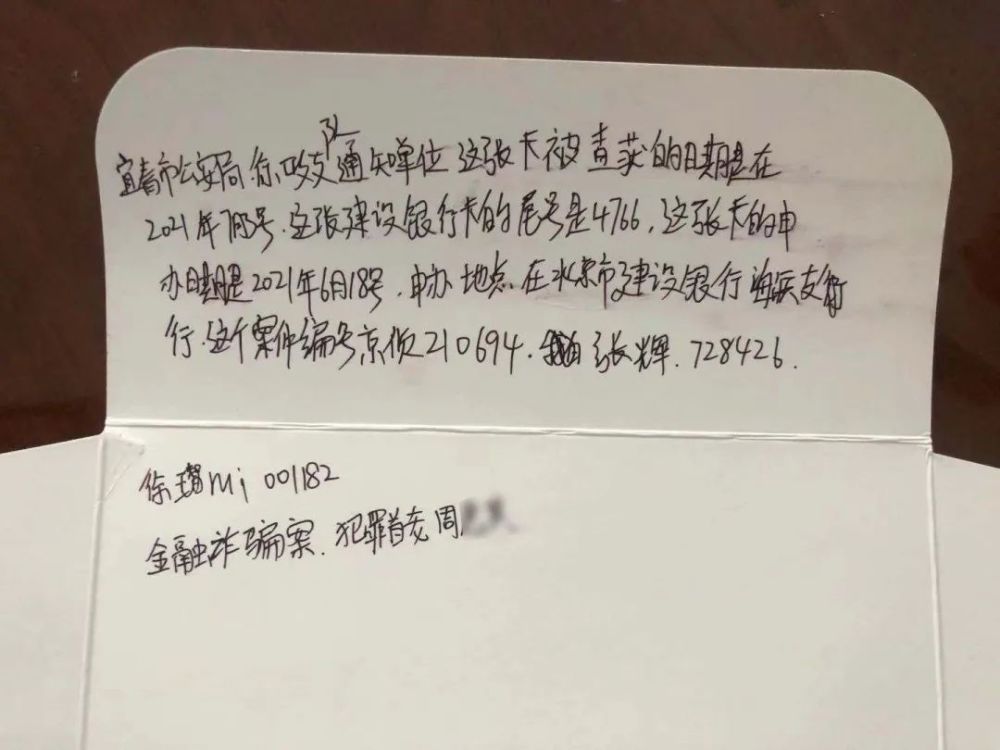 宜春市公安局侦查支队通知单位 这张卡被查获的日期是在
2021年7月5号.这张建设银行卡的尾号是4766,这张卡的申
办日期是2021年6月18号.申办地点在北京市建设银行海滨支行
行.这个案件编号京侦210694. 张辉.728426.
徐mi 001182
金融诈骗案.犯罪首交周